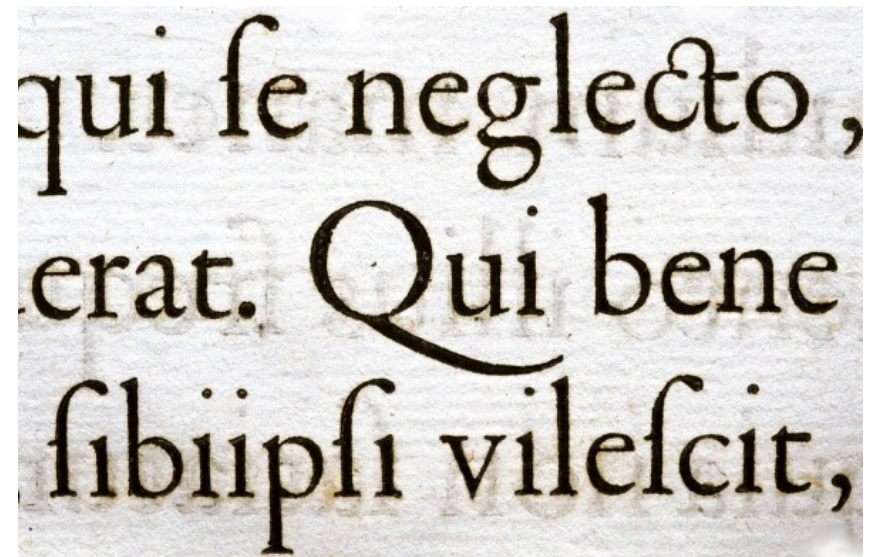 qui ſe neglecto,
erat. Qui bene
ſibiipſi vileſcit,